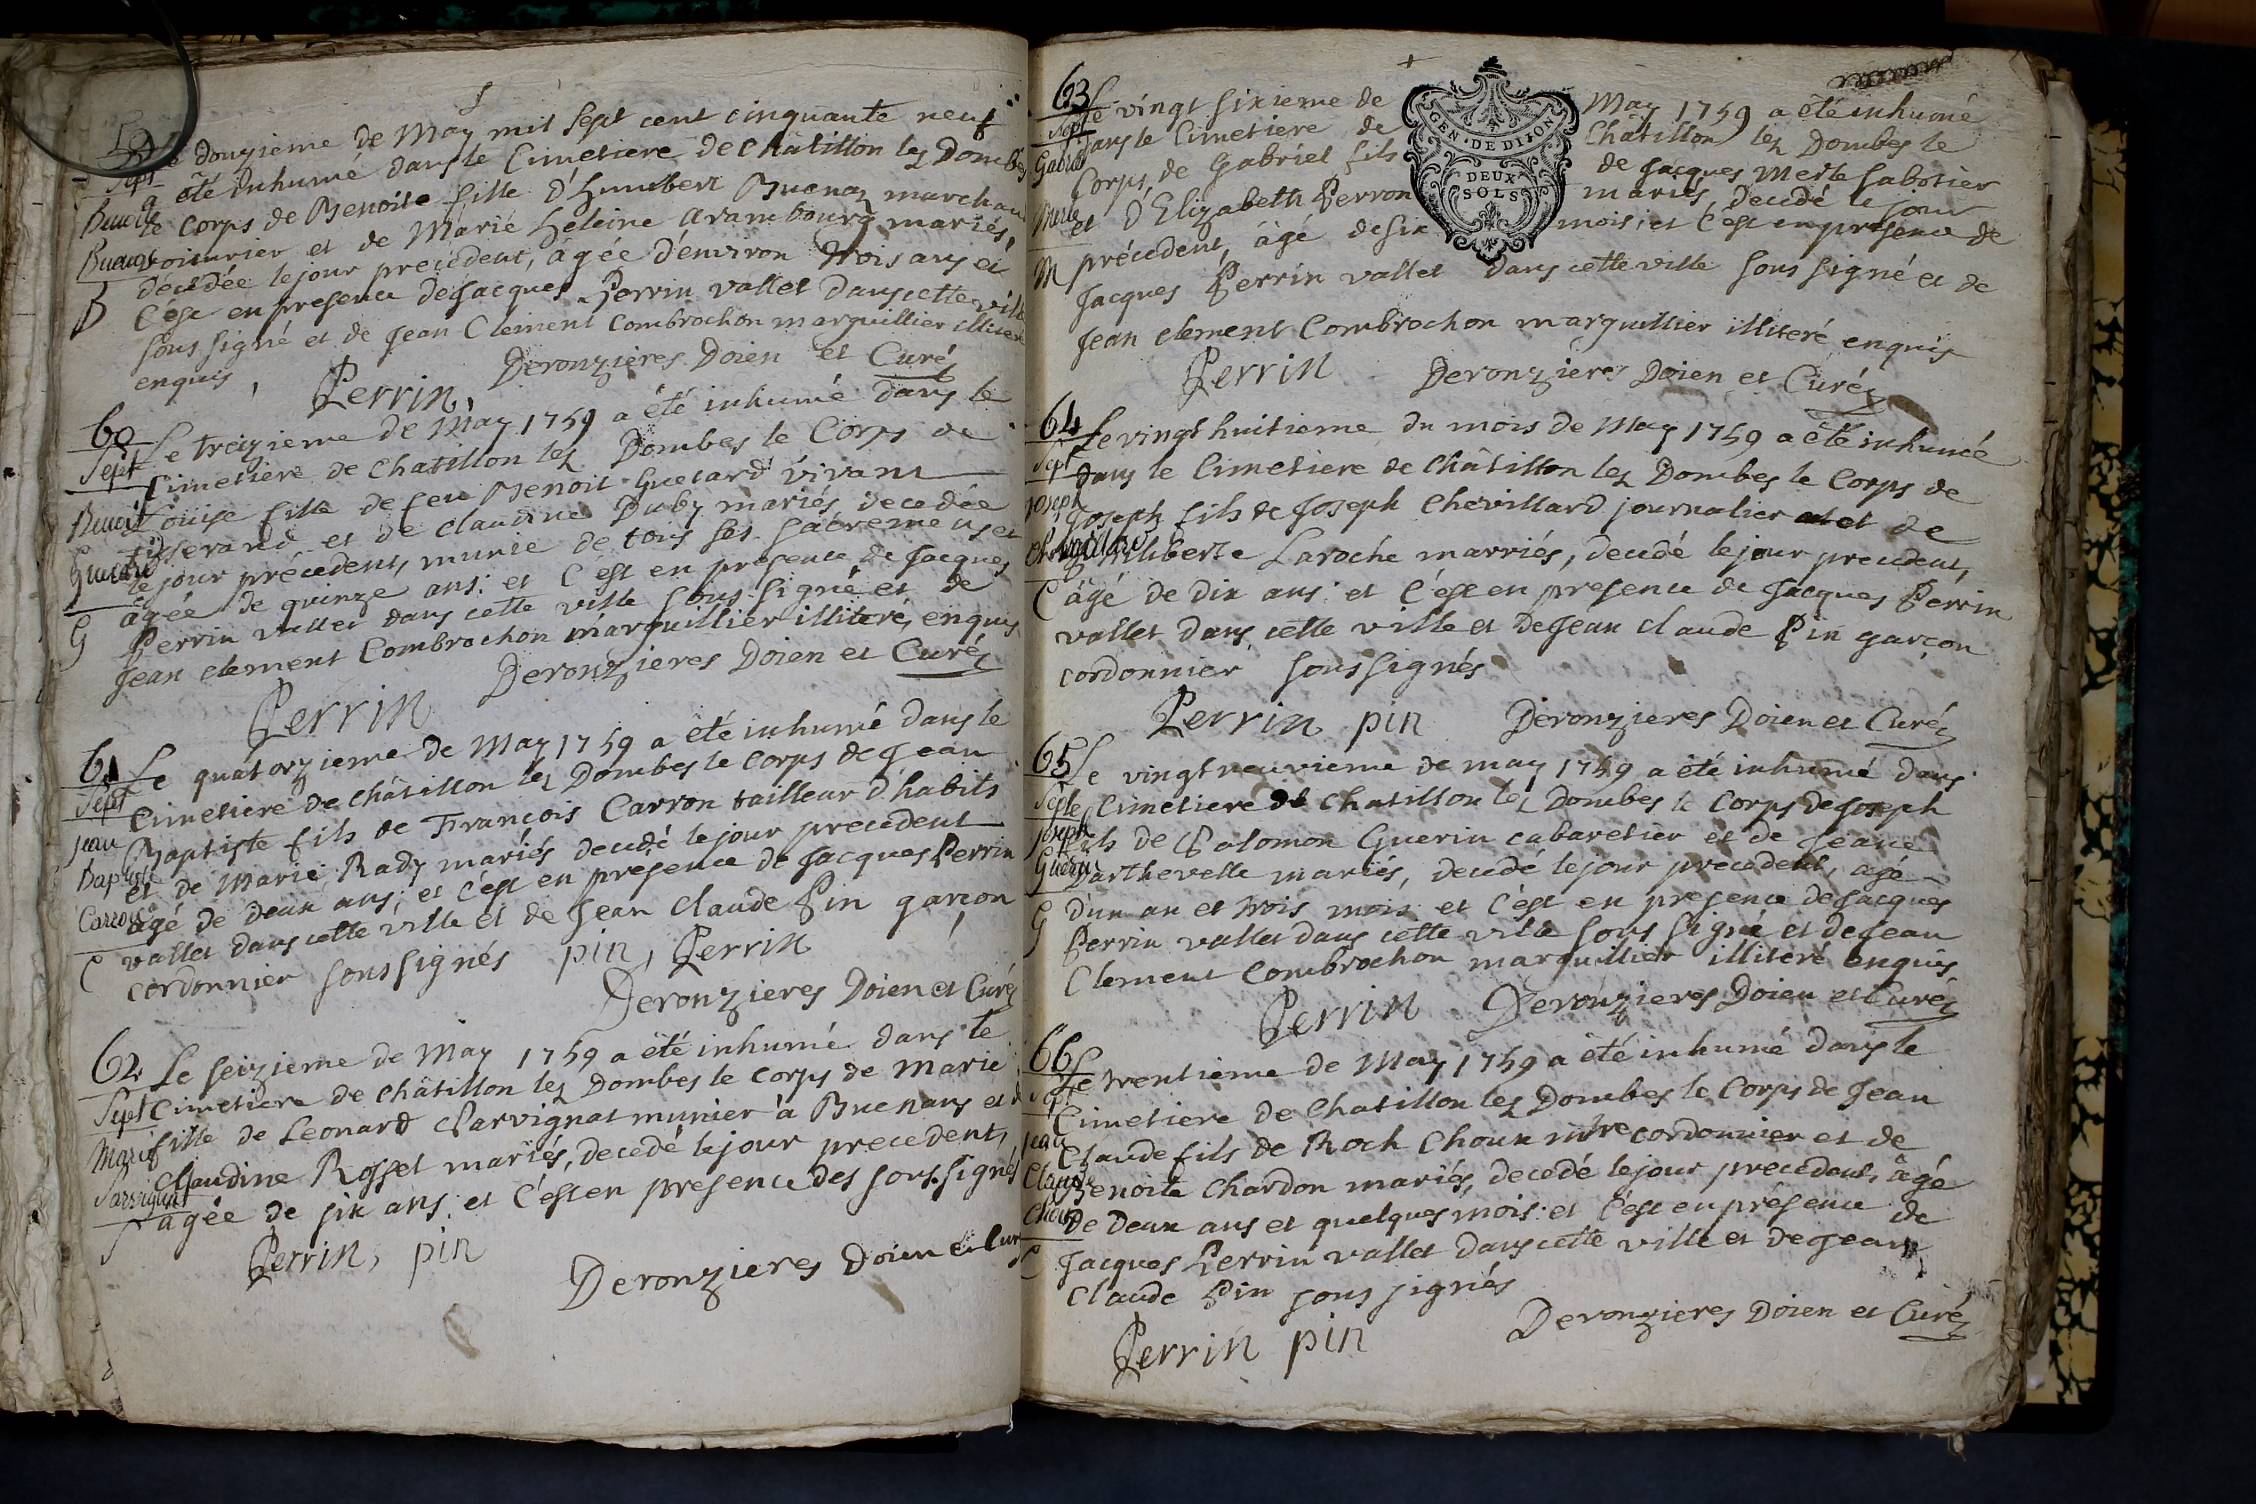 59
Sept
Benoite
Buenoz
B
Le douzieme de May mil sept cent cinquante neuf
a été inhumé dans le Cimetiere de Châtillon lez Dombes
le Corps de Benoite fille d'Humbert Buenoz marchand
voiturier et de Marie Heleine Arambourg mariés,
decedée le jour precedent, âgée d'environ trois ans et
c'est en presence de Jacques Perrin vallet dans cette ville
sous signé et de Jean Clement Combrochon marguillier illiteré
enquis,
Perrin, Deronzieres Doien et Curé
60
Sept
Guetard
G
Le treizieme de May 1759 a été inhumé dans le
Cimetiere de Chatillon lez Dombes le Corps de
Louise fille de feu Benoit Guetard vivant
tisserand et de Claudine Duby mariés decedée
le jour précedent, munie de tous ses sacremens et
âgée de quinze ans: et c'est en presence de Jacques
Perrin vallet dans cette ville sous signé et de
Jean clement Combrochon marguillier illiteré, enquis
Perrin Deronzieres Doien et Curé
61
Sept
Jean
Baptiste
Carron
C
Le quatorzieme de May 1759 a été inhumé dans le
Cimetiere de Châtillon lez Dombes le Corps de Jean
Baptiste fils de François Carron tailleur d'habits
et de Marie Rady mariés decedé le jour precedent
âgé de deux ans; et c'est en presence de Jacques Perrin
vallet dans cette ville et de Jean Claude Pin garçon
cordonnier sous signés pin, Perrin
Deronzieres Doien et Curé
62
Sept
Marie
Le seizieme de May 1759 a été inhumé dans le
Cimetiere de Châtillon lez Dombes le Corps de Marie
fille de Leonard Parvignat munier à Buenans et de
Claudine Rosset mariés, decedé le jour precedent,
âgée de six ans: et c'est en presence des sous signés
Perrin, pin
Deronzieres Doien et Curé
63
Sept
Gabriel
Merle
M
GEN · DE DIJON
DEUX
SOLS
Le vingt sixieme de May 1759 a été inhumé
dans le Cimetiere de Châtillon lez Dombes le
Corps de Gabriel fils de Jacques Merle sabotier
et d'Elizabeth Perron mariés, decedé le jour
précedent, âgé de six mois; et c'est en presence de
Jacques Perrin vallet dans cette ville sous signé et de
Jean clement Combrochon marguillier illiteré enquis
Perrin Deronzieres Doien et Curé
64
Sept
Joseph
Chevillard
C
Le vingt huitieme du mois de May 1759 a été inhumé
dans le Cimetiere de Châtillon lez Dombes le Corps de
Joseph fils de Joseph Chevillard journalier et de
Philiberte Laroche marriés, decedé le jour precedent,
âgé de dix ans: et c'est en presence de Jacques Perrin
vallet dans cette ville et de Jean Claude Pin garçon
cordonnier sous signés
Perrin pin Deronzieres Doien et Curé
65
Sept
Joseph
Guerin
G
Le vingt neuvieme de may 1759 a été inhumé dans
le Cimetiere de Chatillon lez Dombes le Corps de Joseph
fils de Salomon Guerin cabaretier et de Jeane
Darthevelle mariés, decedé le jour precedent, agé
d'un an et trois mois: et c'est en presence de Jacques
Perrin vallet dans cette ville sous signé et de Jean
Clement Combrochon marguillier illiteré enquis
Perrin Deronzieres Doien et Curé
66
Sept
Jean
Claude
Choux
C
Le trentieme de May 1759 a été inhumé dans le
Cimetiere de Chatillon lez Dombes le Corps de Jean
Claude fils de Roch Choux mtre cordonnier et de
Benoite Chardon mariés, decedé le jour precedent, âgé
de deux ans et quelques mois: et c'est en présence de
Jacques Perrin vallet dans cette ville et de Jean
Claude Pin sous signés
Deronzieres Doien et Curé
Perrin pin